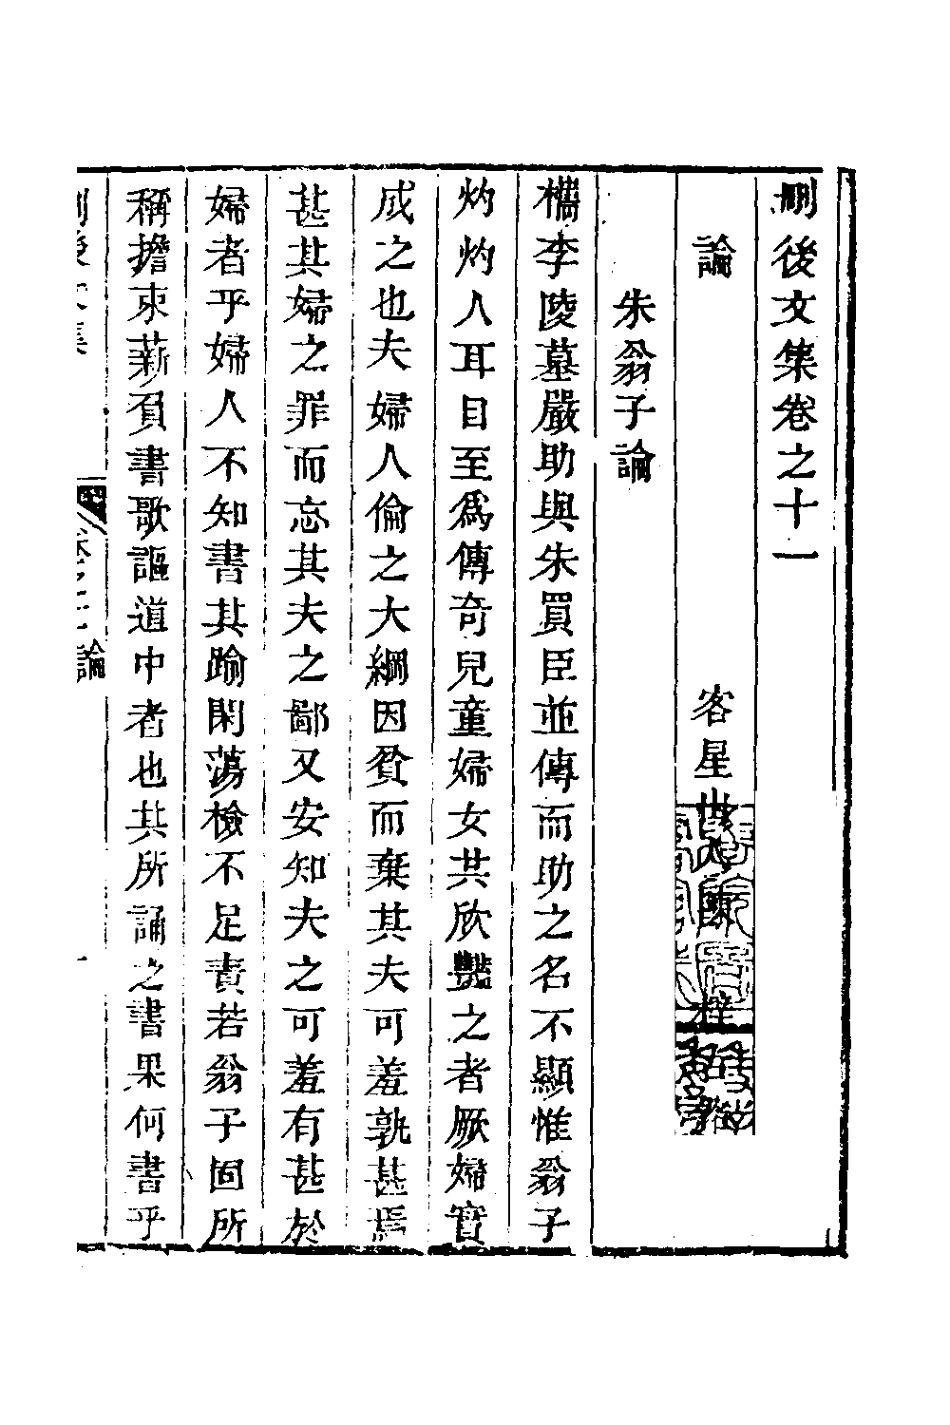 刪後文集卷之十一
論
客星山人陳梓
朱翁子論
檇李陵墓嚴助與朱買臣並傳而助之名不顯惟翁子
灼灼人耳目至爲傳奇兒童婦女共欣艷之者厥婦實
成之也夫婦人倫之大綱因貧而棄其夫可羞孰甚焉
甚其婦之罪而忘其夫之鄙又安知夫之可羞有甚於
婦者乎婦人不知書其踰閑蕩檢不足責若翁子固所
稱擔束薪負書歌謳道中者也其所誦之書果何書乎
刪後文集 卷之十一 論 一